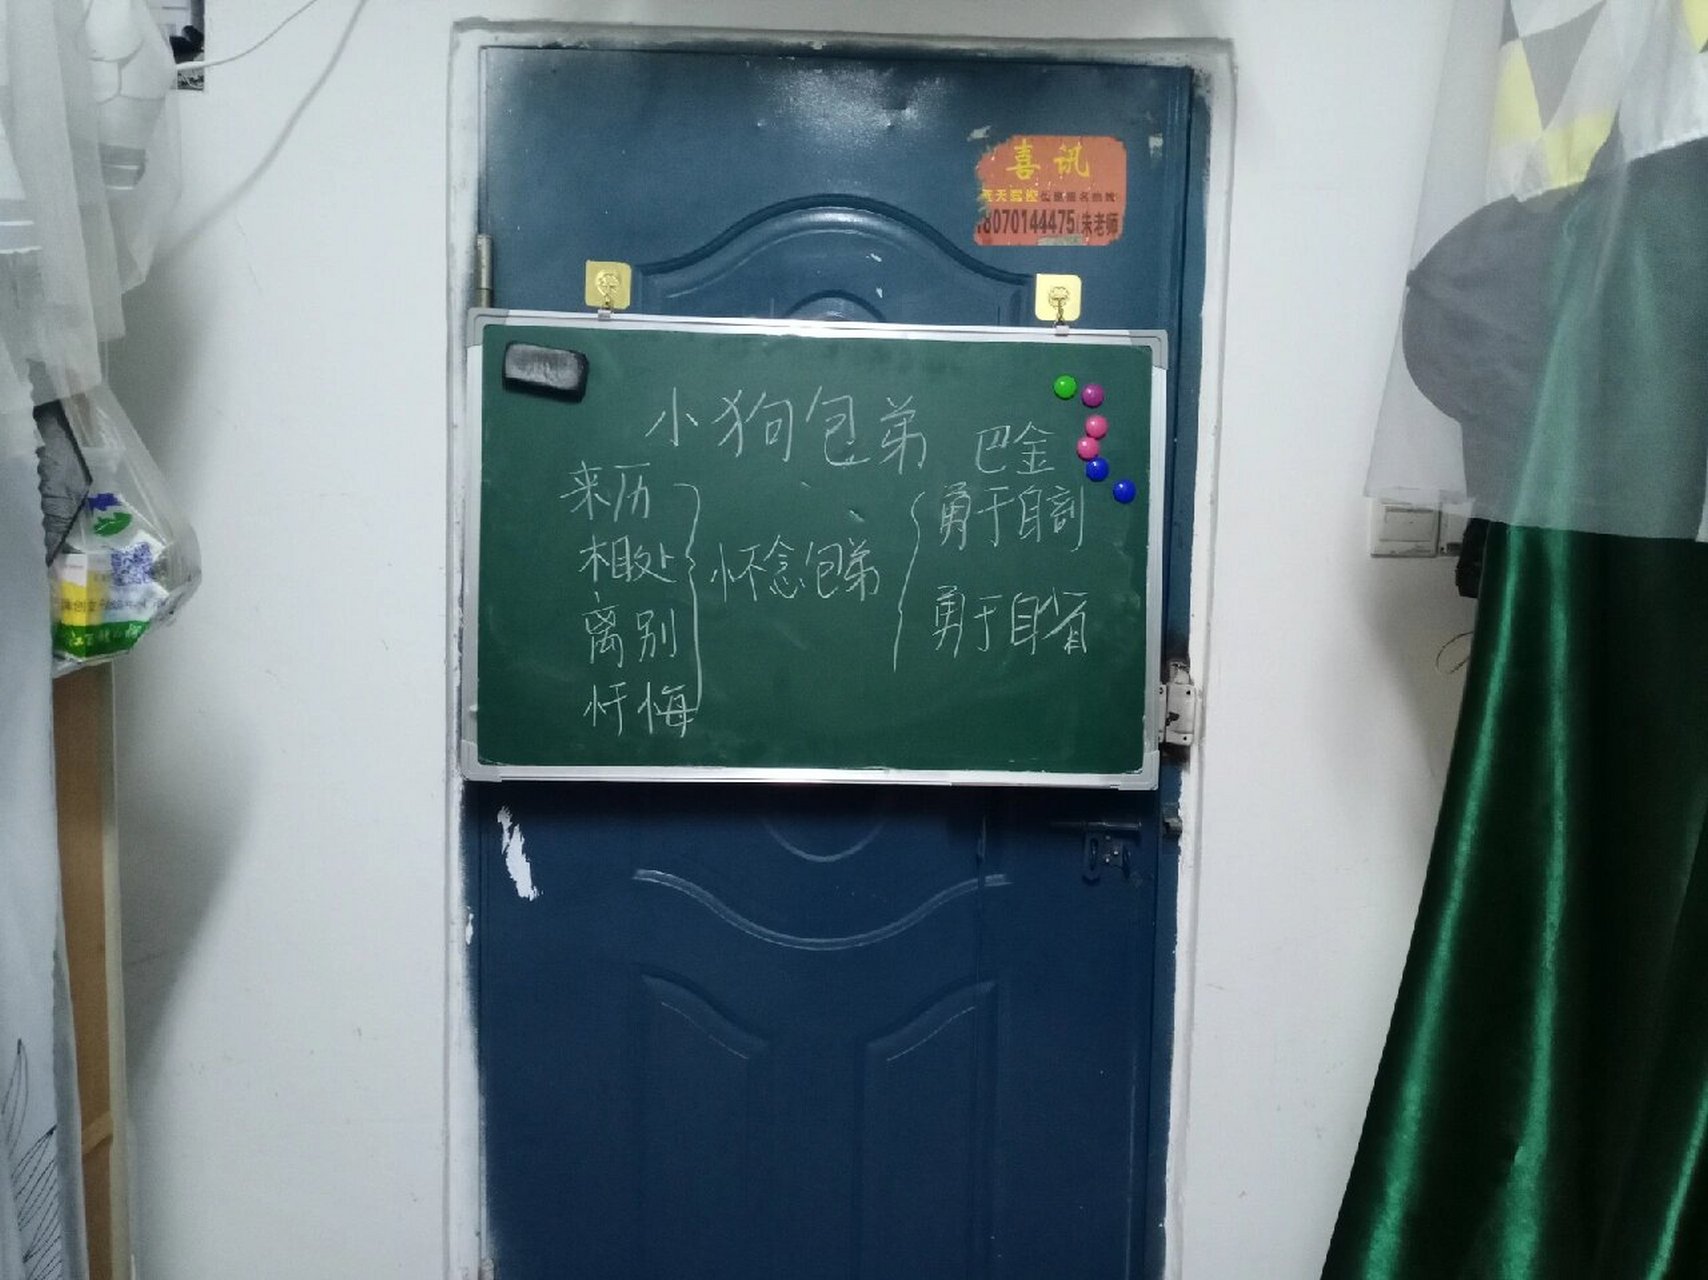 喜讯
18070144475 朱老师
小狗包弟 巴金
来历
相处
离别
忏悔
怀念包弟
勇于自剖
勇于自省